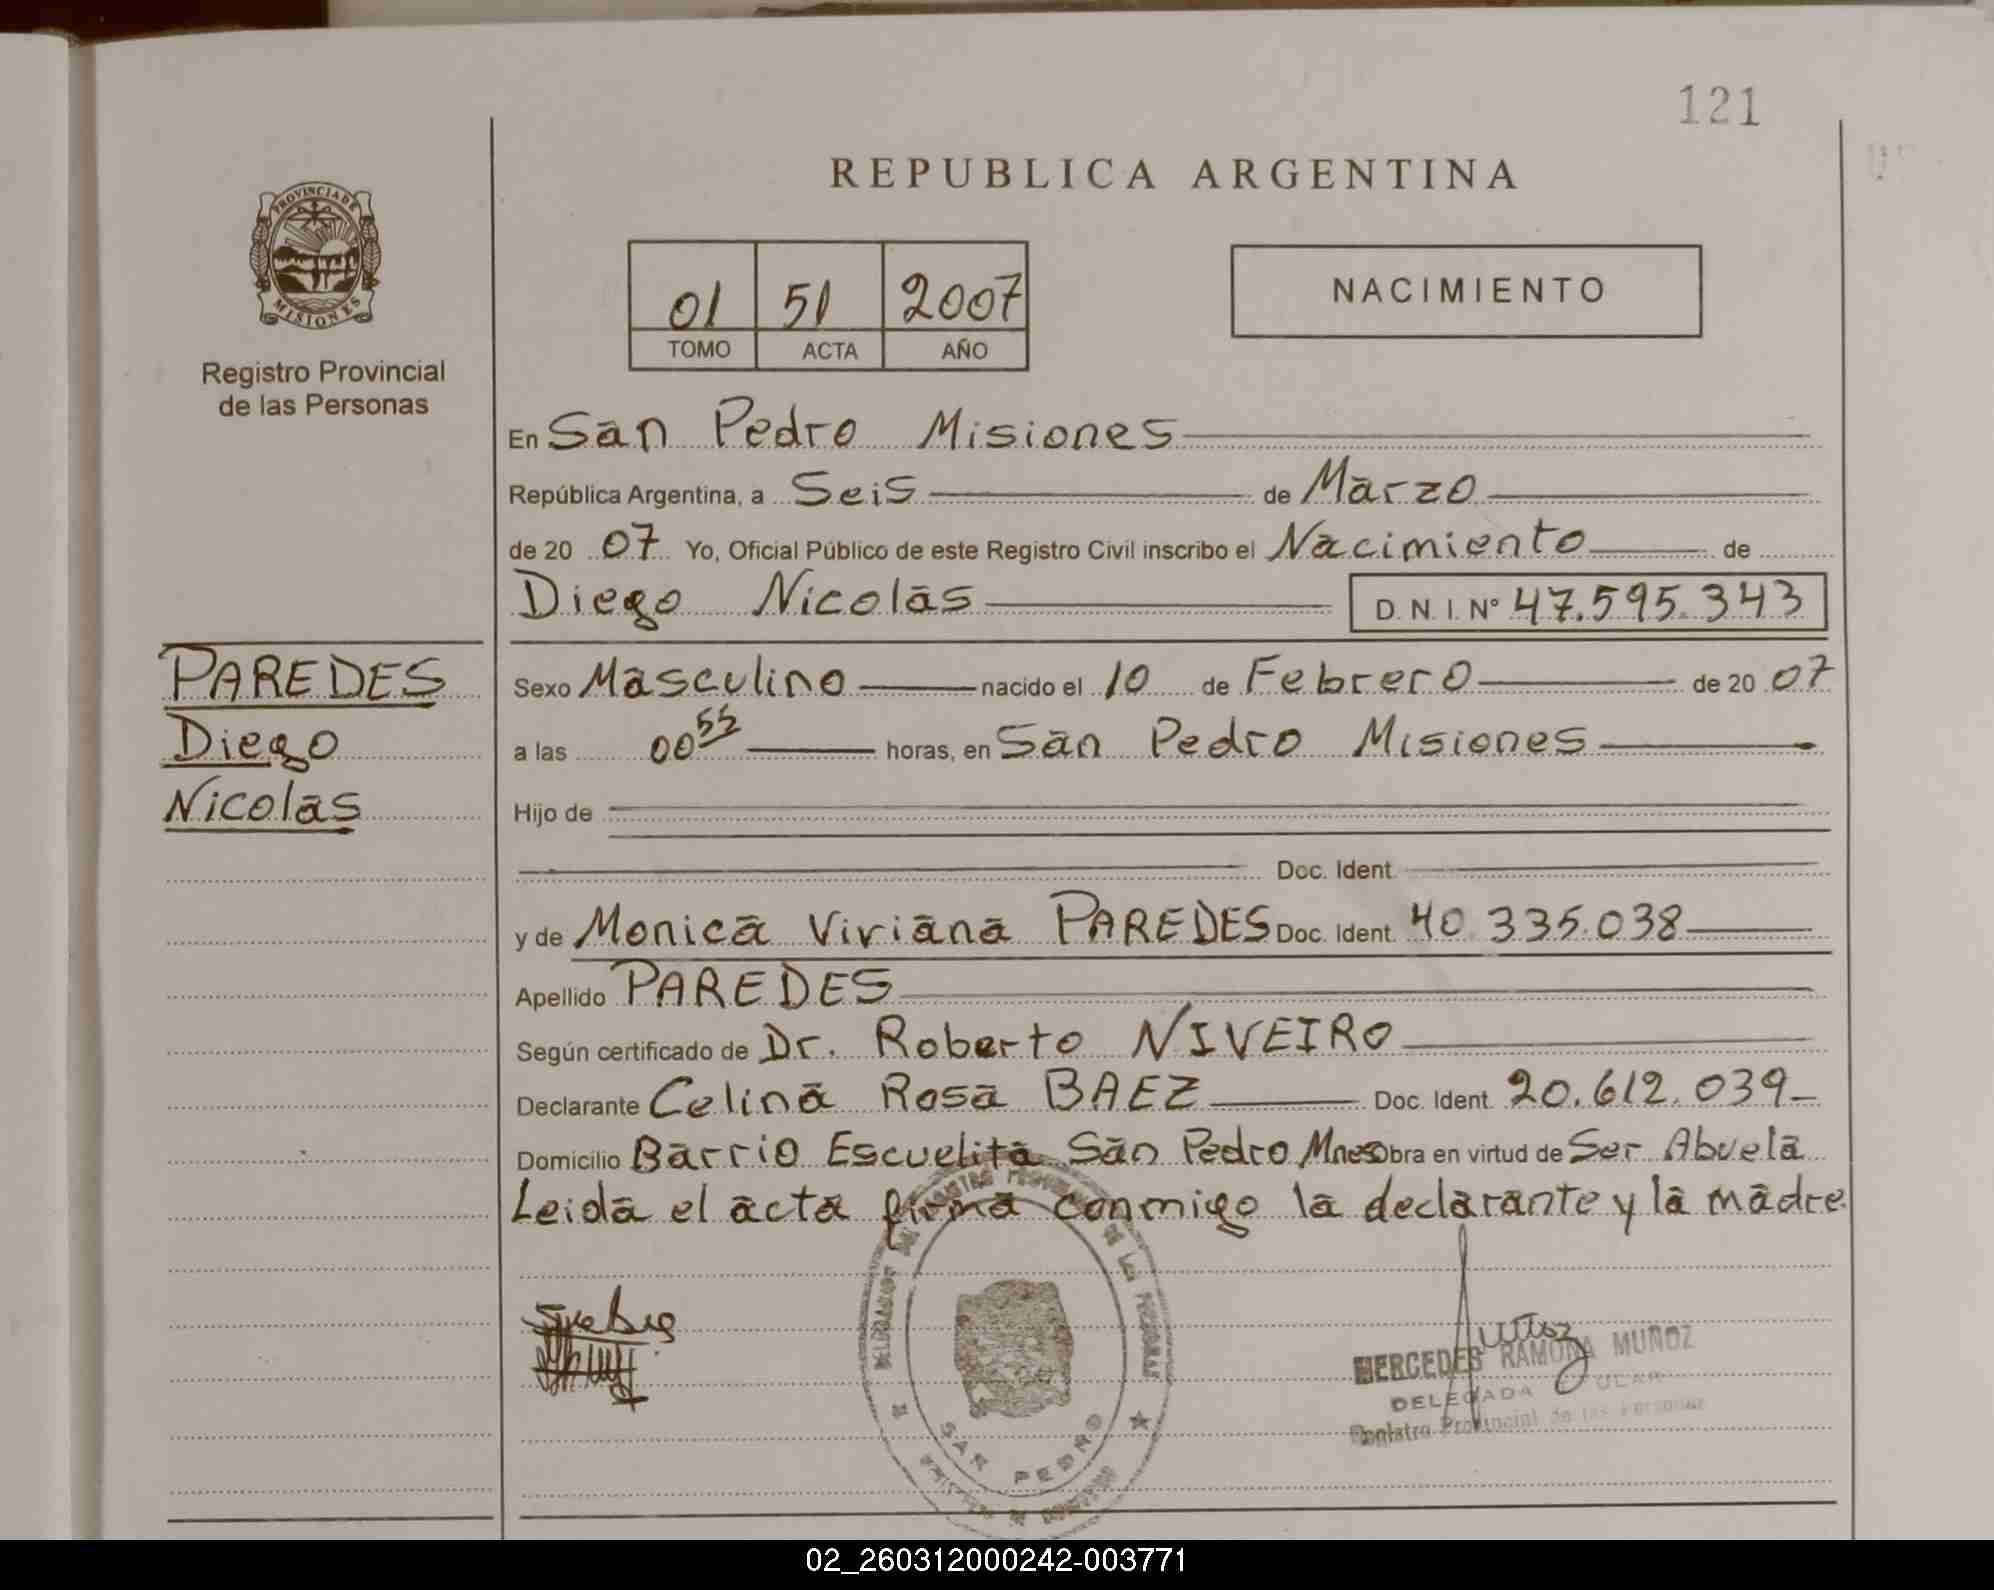 121
REPUBLICA ARGENTINA
PROVINCIA DE
MISIONES
Registro Provincial
de las Personas
01 51 2007
TOMO ACTA AÑO
NACIMIENTO
En San Pedro Misiones
República Argentina, a Seis de Marzo
de 20 07 Yo, Oficial Público de este Registro Civil inscribo el Nacimiento de
Diego Nicolás D. N. I. N° 47.595.343
PAREDES
Diego
Nicolás
Sexo Masculino nacido el 10 de Febrero de 20 07
a las 00 55 horas, en San Pedro Misiones
Hijo de
Doc. Ident.
y de Monica Viviana PAREDES Doc. Ident. 40.335.038
Apellido PAREDES
Según certificado de Dr. Roberto NIVEIRO
Declarante Celina Rosa BAEZ Doc. Ident. 20.612.039
Domicilio Barrio Escuelita San Pedro Mnes Obra en virtud de Ser Abuela
Leida el acta firma conmigo la declarante y la madre.
SAN PEDRO
MERCEDES RAMONA MUÑOZ
DELEGADA TITULAR
Registro Provincial de las Personas
02_260312000242-003771